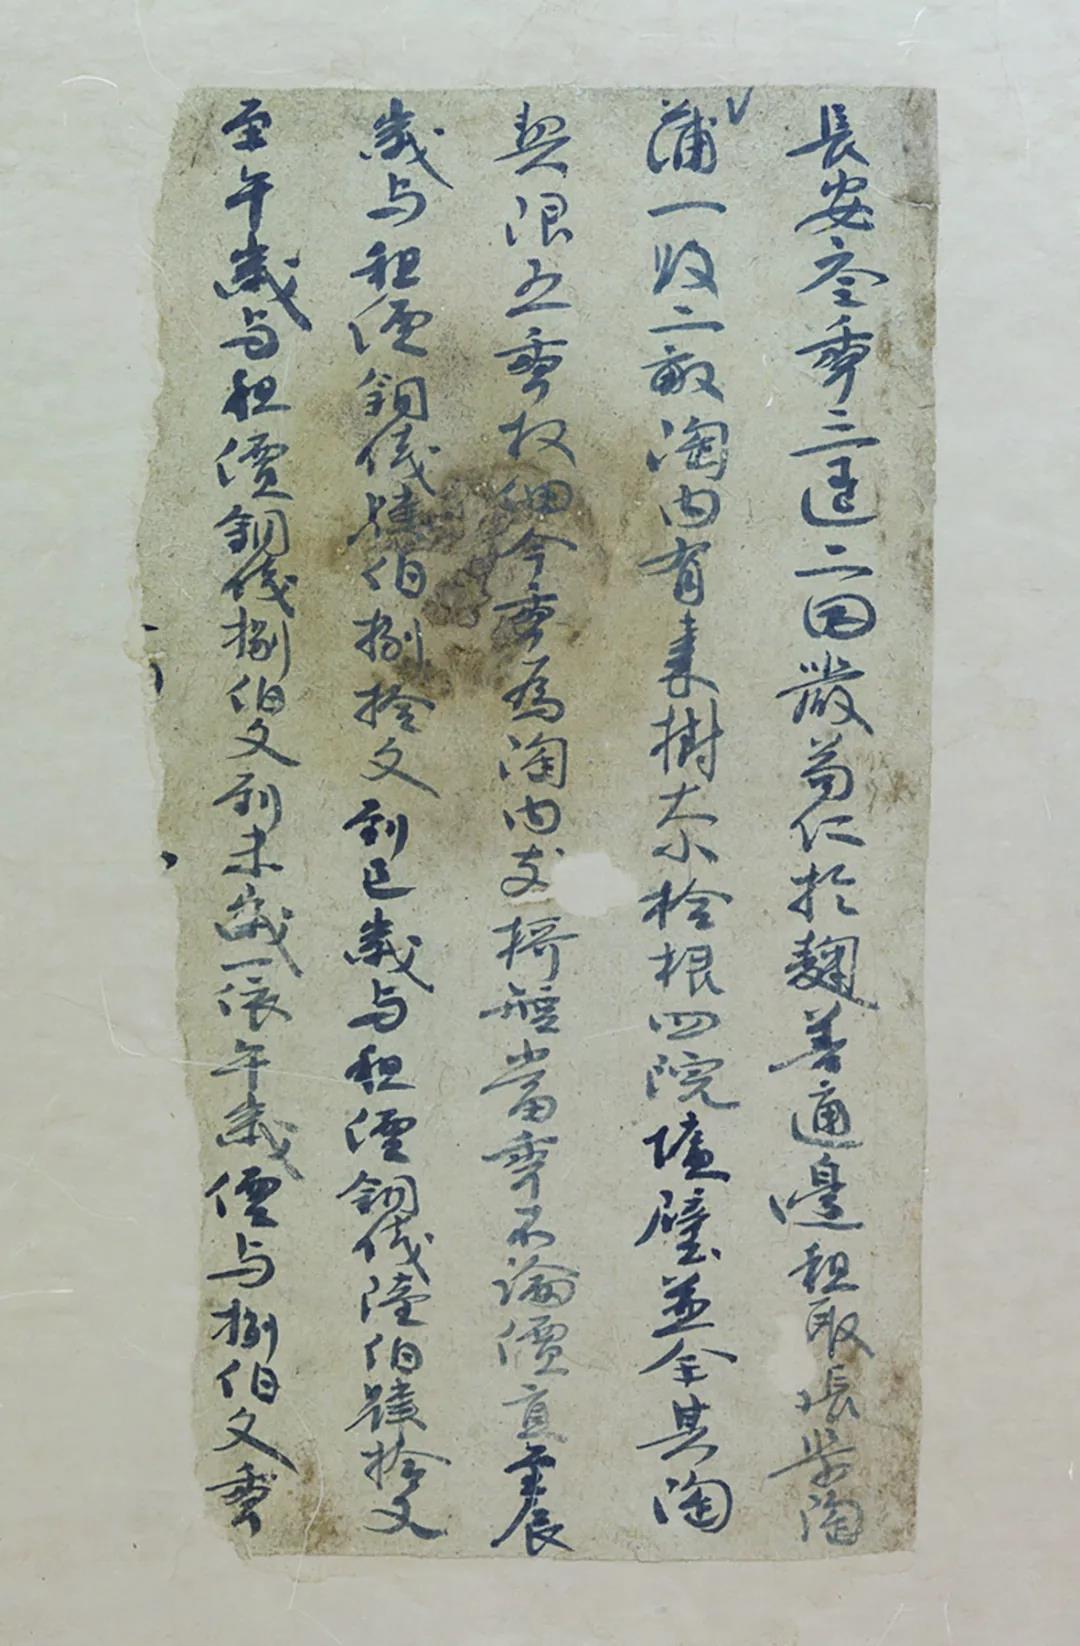 長安叁年三月二日嚴苟仁於麴善通邊租取張渠陶
蒲一段二畝淘内有棗樹大小拾根四院墻壁並全其陶
契限五年收佃今年為淘内支橛短當年不論價直至辰
歲与租價銅錢肆伯捌拾文到巳歲与租價銅錢陸伯肆拾文
至午歲与租價銅錢捌伯文到未歲一依午歲價与捌伯文年